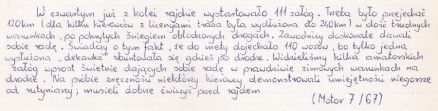 W czwartym już z kolei rajdzie wystartowało 111 załóg. Trzeba było przejechać
120km (dla kilku kierowców z licencjami trasa była wydłużona do 240km) w dość trudnych
warunkach, po pokrytych śniegiem oblodzonych drogach. Zawodnicy doskonale dawali
sobie radę. Świadczy o tym fakt, że do mety dojechało 110 wozów, bo tylko jedna
wysłużona, „dekawka” zbuntowała się gdzieś po drodze. Widzieliśmy kilka amatorskich
załóg wprost świetnie dających sobie radę w prawdziwie zimowych warunkach na
drodze. Na próbie zręczności niektórzy kierowcy demonstrowali umiejętności niegorze
od rutyniarzy; musieli dobrze ćwiczyć przed rajdem
(Motor 7/67)